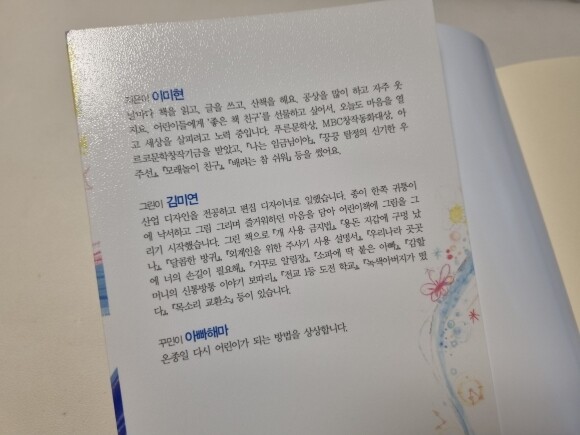 지은이 이미현
날마다 책을 읽고, 글을 쓰고, 산책을 해요. 공상을 많이 하고 자주 웃
지요. 어린이들에게 '좋은 책 친구'를 선물하고 싶어서, 오늘도 마음을 열
고 세상을 살피려고 노력 중입니다. 푸른문학상, MBC창작동화대상, 아
르코문학창작기금을 받았고, 『나는 임금님이야』, 『뚱공 탐정의 신기한 우
주선』, 『모래놀이 친구』, 『배려는 참 쉬워』 등을 썼어요.
그린이 김미연
산업 디자인을 전공하고 편집 디자이너로 일했습니다. 종이 한쪽 귀퉁이
에 낙서하고 그림 그리며 즐거워하던 마음을 담아 어린이책에 그림을 그
리기 시작했습니다. 그린 책으로 『개 사용 금지법』, 『용돈 지갑에 구멍 났
나』, 『달콤한 방귀』, 『외계인을 위한 주사기 사용 설명서』, 『우리나라 곳곳
에 너의 손길이 필요해』, 『거꾸로 알림장』, 『소파에 딱 붙은 아빠』, 『갑할
머니의 신통방통 이야기 보따리』, 『전교 1등 도전 학교』, 『녹색아버지가 떴
다』, 『목소리 교환소』 등이 있습니다.
꾸민이 아빠해마
온종일 다시 어린이가 되는 방법을 상상합니다.